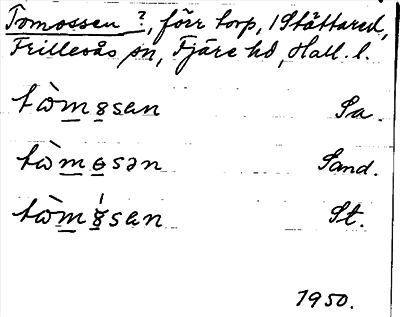 Tomossen ?, förr torp, i Stättared,
Frillesås sn, Fjäre hd, Hall. l.
tòmɵsen Sa.
tòmɵsən Sand.
tòmɵ́sen St.
1950.